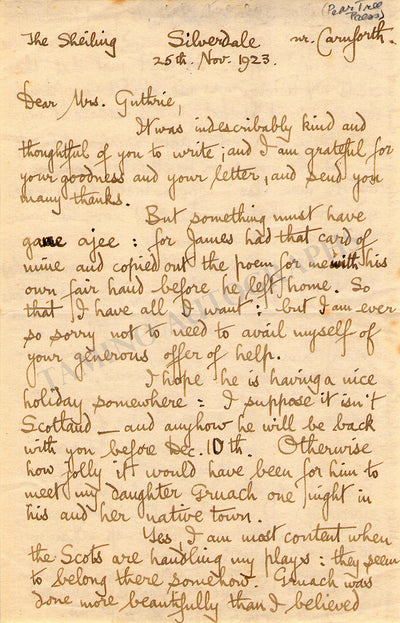 (Pear Tree
Press)
The Sheiling Silverdale nr. Carnforth.
25th. Nov. 1923.
Dear Mrs. Guthrie,
It was indescribably kind and
thoughtful of you to write; and I am grateful for
your goodness and your letter, and send you
many thanks.
But something must have
gane ajee: for James had that card of
mine and copied out the poem for me with his
own fair hand before he left home. So
that I have all I want: but I am ever
so sorry not to need to avail myself of
your generous offer of help.
I hope he is having a nice
holiday somewhere: I suppose it isn't
Scotland — and anyhow he will be back
with you before Dec. 10th. Otherwise
how jolly it would have been for him to
meet my daughter Gruach one night in
his and her native town.
Yes, I am most content when
the Scots are handling my plays: they seem
to belong there somehow. Gruach was
done more beautifully than I believed
TAMINO AUTOGRAPHS